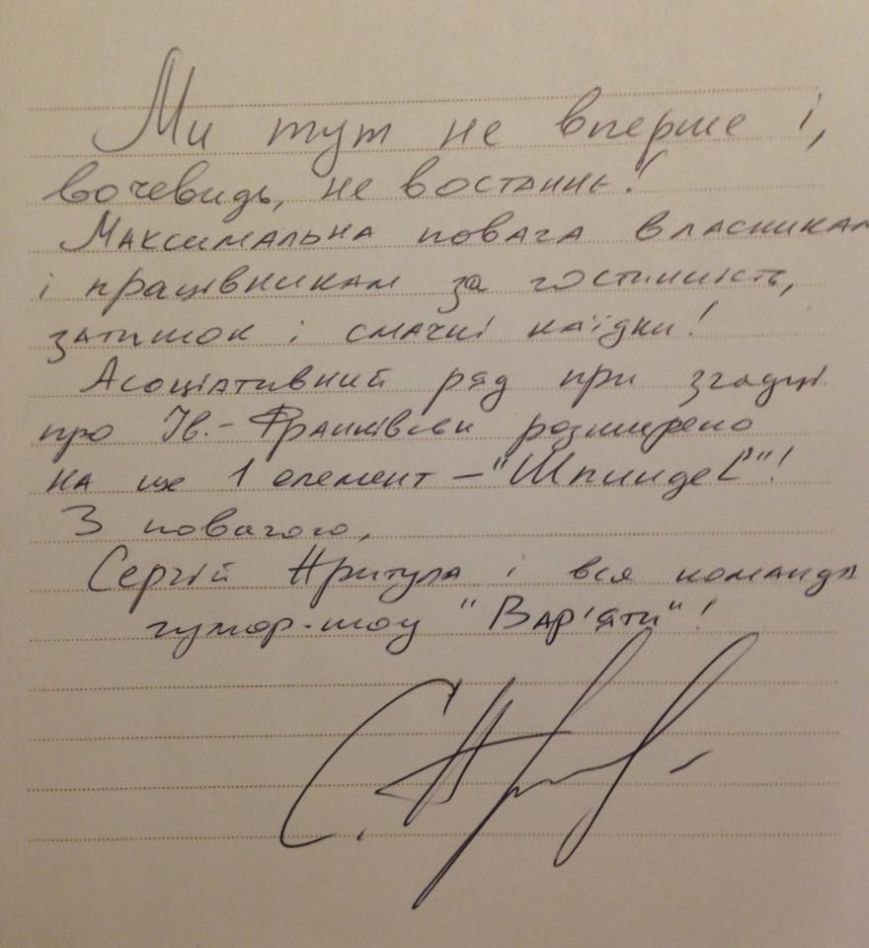 Ми тут не вперше і,
вочевидь, не востаннє!
Максимальна повага власникам
і працівникам за гостинність,
затишок і смачні наїдки!
Асоціативний ряд при згадці
про Ів.-Франківськ розширено
на ще 1 елемент – "Шпиндель"!
З повагою,
Сергій Притула і вся команда
гумор-шоу "Вар'яти"!